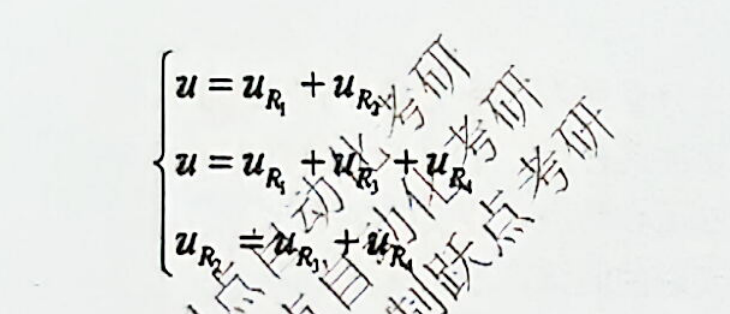 u = u_{R_1} + u_{R_2}
u = u_{R_1} + u_{R_3} + u_{R_4}
u_{R_2} = u_{R_3} + u_{R_4}
点自动化考研
点自动化考研
制跃点考研